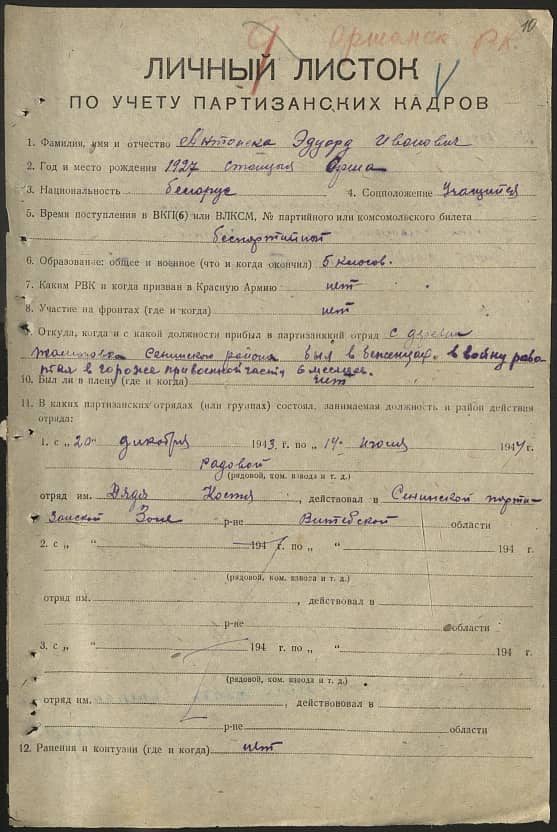 10
Оршанск РК.
ЛИЧНЫЙ ЛИСТОК
ПО УЧЕТУ ПАРТИЗАНСКИХ КАДРОВ
1. Фамилия, имя и отчество Эдуард Иванович
2. Год и место рождения 1927 станцыя Орша
3. Национальность белорус 4. Соцположение Учащийся
5. Время поступления в ВКП(б) или ВЛКСМ, № партийного или комсомольского билета
беспартийной
6. Образование: общее и военное (что и когда окончил) 5 класов.
7. Каким РВК и когда призван в Красную Армию нет
8. Участие на фронтах (где и когда) нет
9. Откуда, когда и с какой должности прибыл в партизанкий отряд с деревни
Сенинского района был в беженцах. в войну рабо
тал в гороже при воиной части 6 месяцев.
10. Был ли в плену (где и когда) нет
11. В каких партизанских отрядах (или группах) состоял, занимаемая должность и район действия
отряда:
1. с „20" декабря 1943 г. по „14" июля 1944 г.
радовой
(рядовой, ком. взвода и т. д.)
отряд им. Дядя Костя, действовал в Сенинской парти-
занской Зоне р-не Витебской области
2. с „ " 194 г. по „ " 194 г.
(рядовой, ком. взвода и т. д.)
отряд им. , действовал в
р-не области
3. с „ " 194 г. по „ " 194 г.
(рядовой, ком. взвода и т. д.)
отряд им. , действововал в
р-не области
12. Ранения и контузии (где и когда) нет